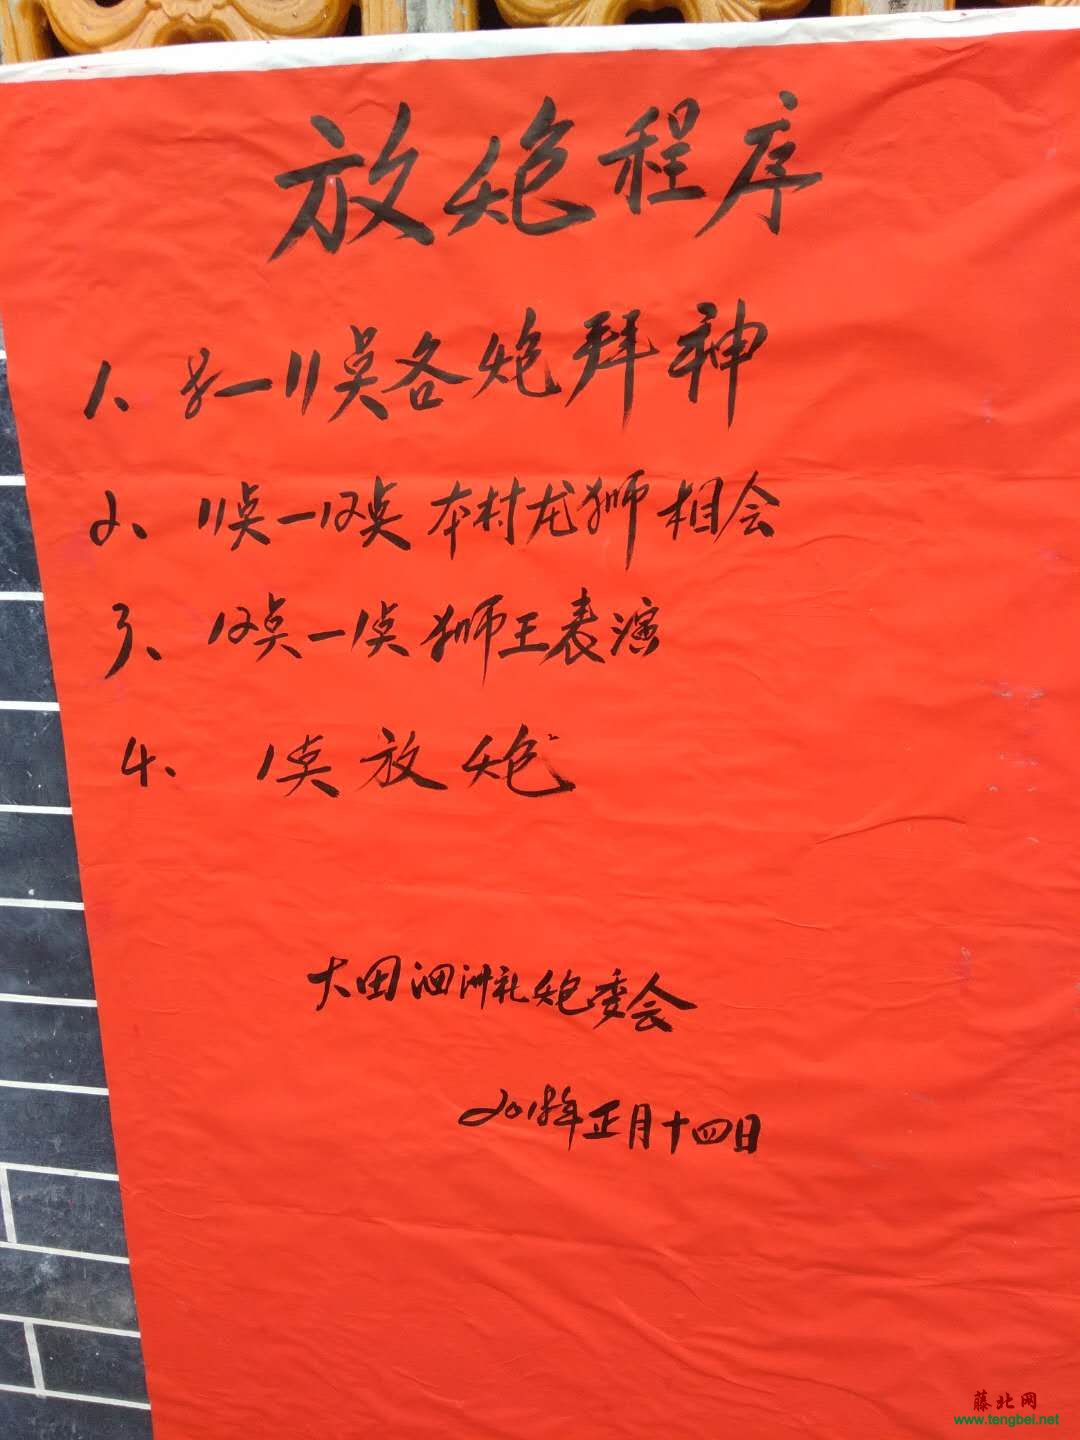 放炮程序
1、一11点各炮拜神
2、11点一12点本村龙狮相会
3、12点一1点狮王表演
4、1点放炮
大田泗洲礼炮委会
2018年正月十四日
藤北网
www.tengbei.net